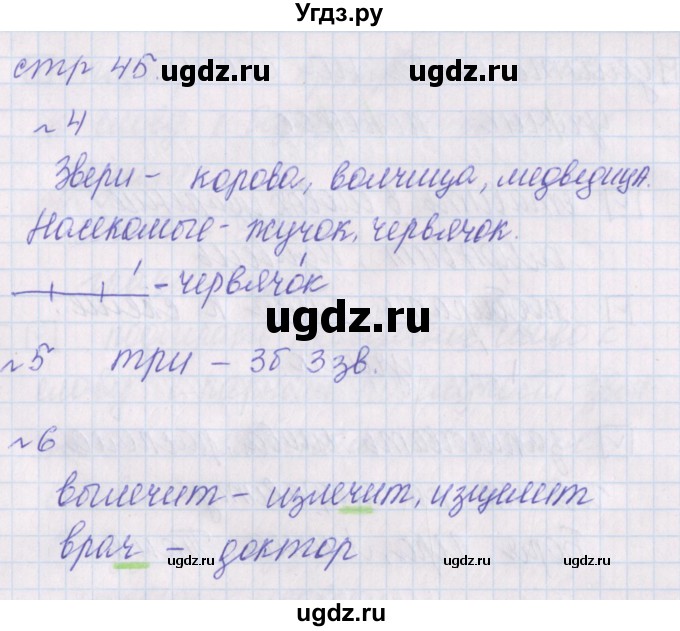 Угдз.ру
стр 45.
ugdz.ru ugdz.ru
№4
Звери - корова, волчица, медведица.
Насекомые - жучок, червячок.
- червячо́к
ugdz.ru
№5 три - 3б 3 зв.
№6
вылечит - излечит, изцелит
врач - доктор
ugdz.ru ugdz.ru
ugdz.ru